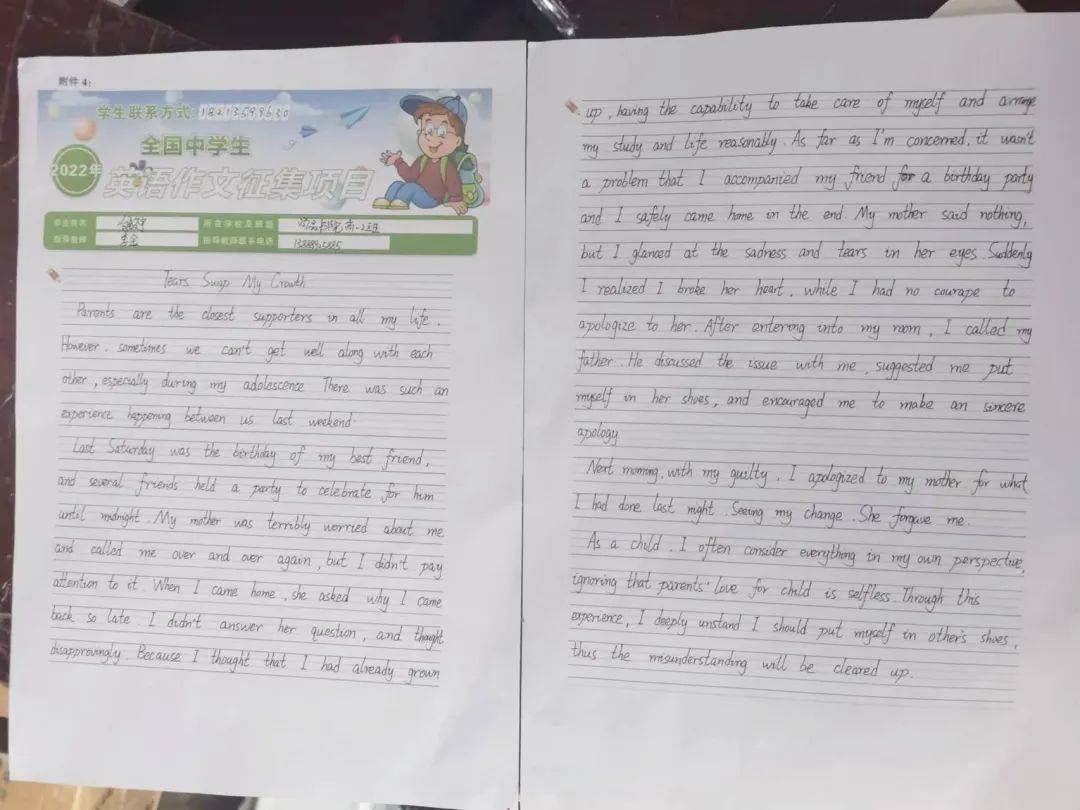 附件 4:
学生联系方式
全国中学生
2022年
英语作文征集项目
学生姓名 所在学校及班级
指导教师 指导教师联系电话
Tears Swap My Growth
Parents are the closest supporters in all my life.
However, sometimes we can't get well along with each
other, especially during my adolescence There was such an
experience happening between us last weekend
Last Saturday was the birthday of my best friend,
and several friends held a party to celebrate for him
until midnight. My mother was terribly worried about me
and called me over and over again, but I didn't pay
attention to it. When I came home, she asked why I came
back so late I didn't answer her question, and thought
disapprovingly. Because I thought that I had already grown
up, having the capability to take care of myself and arrange
my study and life reasonably. As far as I'm concerned, it wasn't
a problem that I accompanied my friend for a birthday party
and I safely came home in the end. My mother said nothing,
but I glanced at the sadness and tears in her eyes. Suddenly
I realized I broke her heart, while I had no courape to
apologize to her. After entering into my room, I called my
father. He discussed the issue with me, suggested me put
myself in her shoes, and encouraged me to make an sincere
apology
Next morning, with my guilty, I apologized to my mother for what
I had done last night. Seeing my change. She forgave me.
As a child, I often consider everything in my own perspective,
ignoring that parents' love for child is selfless. Through this
experience, I deeply unstand I should put myself in other's shoes,
thus the misunderstanding will be cleared up.